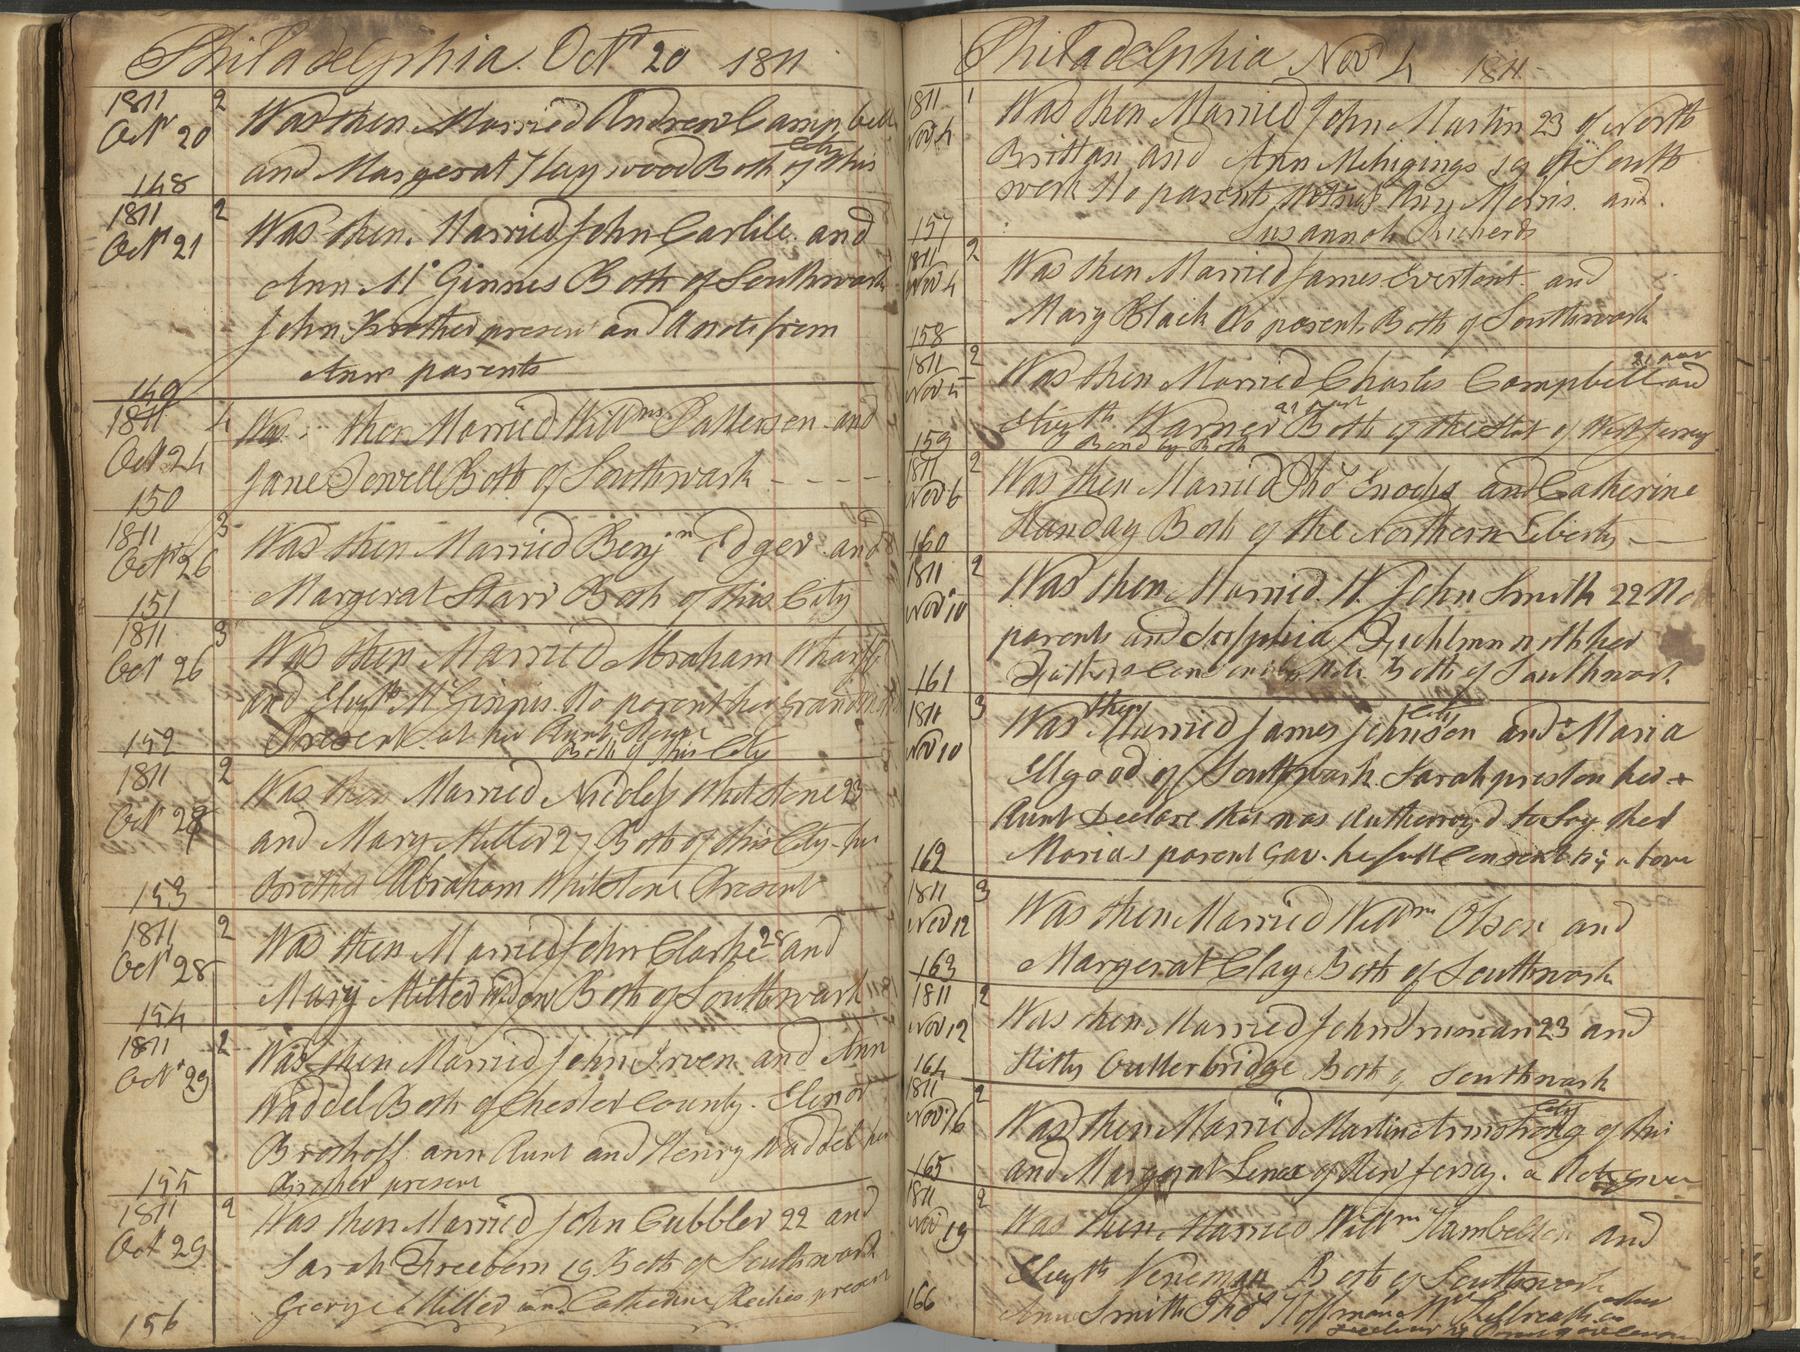 Philadelphia Oct 20 1811
1811 2
Oct 20
Was then Married Andrew Campbell
City
and Margerat Haywood Both of this
148
1811 2
Oct 21
Was then Married John Carlile and
Ann Mc Ginnes Both of Southwark
John Brother present and A note from
Anns parents
149
1811 4
Oct 24
Was then Married Willm Patterson and
Jane Sewell Both of Southwark
150
1811 3
Oct 26
Was then Married Benjn Edger and
Margerat Starr Both of this City
151
1811 3
Oct 26
Was then Married Abraham
and Elizth McGinnis No parent her
Present at her Aunt
Both of this City
152
1811 2
Oct 28
Was then Married Whitstone 23
and Mary Miller 27 Both of this City his
Brother Abraham Whitstone Present
153
1811 2
Oct 28
Was then Married John Clarke 28 and
Mary Miller Widow Both of Southwark
154
1811 2
Oct 29
Was then Married John Irven and Ann
Waddel Both of Chester County Elenor
ann Aunt and Henry Waddel her
Brother present
155
1811 2
Oct 29
Was then Married John Cubbler 22 and
Sarah Freeborn 19 Both of Southwark
George Miller and Catherine present
156
Philadelphia Nov 4 1811
1811 1
Nov 4
Was then Married John Martin 23 of North
Brittan and Ann 19 of South
work No parents Witness Ann Morris and
Susannah Richerds
157
1811 2
Nov 4
Was then Married James and
Mary Black No parents Both of Southwork
158
1811 2
Nov
Was then Married Charles Campbell and
Elizth Warner Both of the State of West Jersey
Bond by Both
159
1811 2
Nov 6
Was then Married Thos Enochs and Catherine
Both of the Northern Libertys
160
1811 2
Nov 10
Was then Married W. John Smith 22 No
parents and with her
Both of Southwork
161
1811 3
Nov 10
then City
Was Married James Johnson and Maria
Ellgood of Southwark Sarah preston her
Aunt Declare that was to Say that
Marias parent Gave he full Consent to above
162
1811 3
Nov 12
Was then Married Willm Olson and
Margerat Clay Both of Southwork
163
1811 2
Nov 12
Was then Married John Truman 23 and
Kitty Outterbridge Both of Southwark
164
1811 2
Nov 16
City
Was then Married Martin Armstrong of this
and Margerat of New Jersey. a Note given
165
1811 2
Nov 19
Was then Married Willm Hambelton and
Elizth Veneman Both of Southwork
Ann Smith Thos Hoffman
166